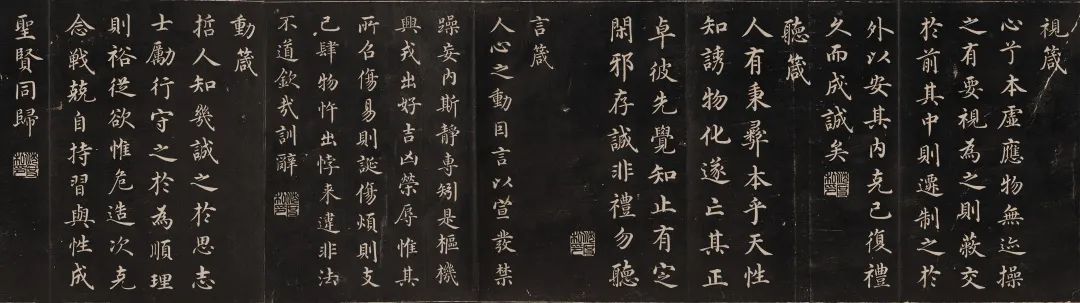 視箴
心兮本虛應物無迹操
之有要視為之則蔽交
於前其中則遷制之於
外以安其內克己復禮
久而成誠矣
聽箴
人有秉彝本乎天性
知誘物化遂亡其正
卓彼先覺知止有定
閑邪存誠非禮勿聽
言箴
人心之動因言以宣發禁
躁妄內斯靜專矧是樞機
興戎出好吉凶榮辱惟其
所召傷易則誕傷煩則支
己肆物忤出悖来違非法
不道欽哉訓辭
動箴
哲人知幾誠之於思志
士勵行守之於為順理
則裕從欲惟危造次克
念戰兢自持習與性成
聖賢同歸